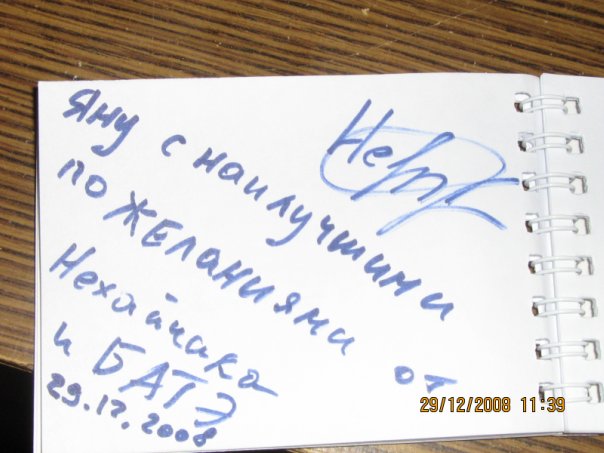 Яну с наилучшими
пожеланиями от
Нехайчика
и БАТЭ
29.12.2008
29/12/2008 11:39